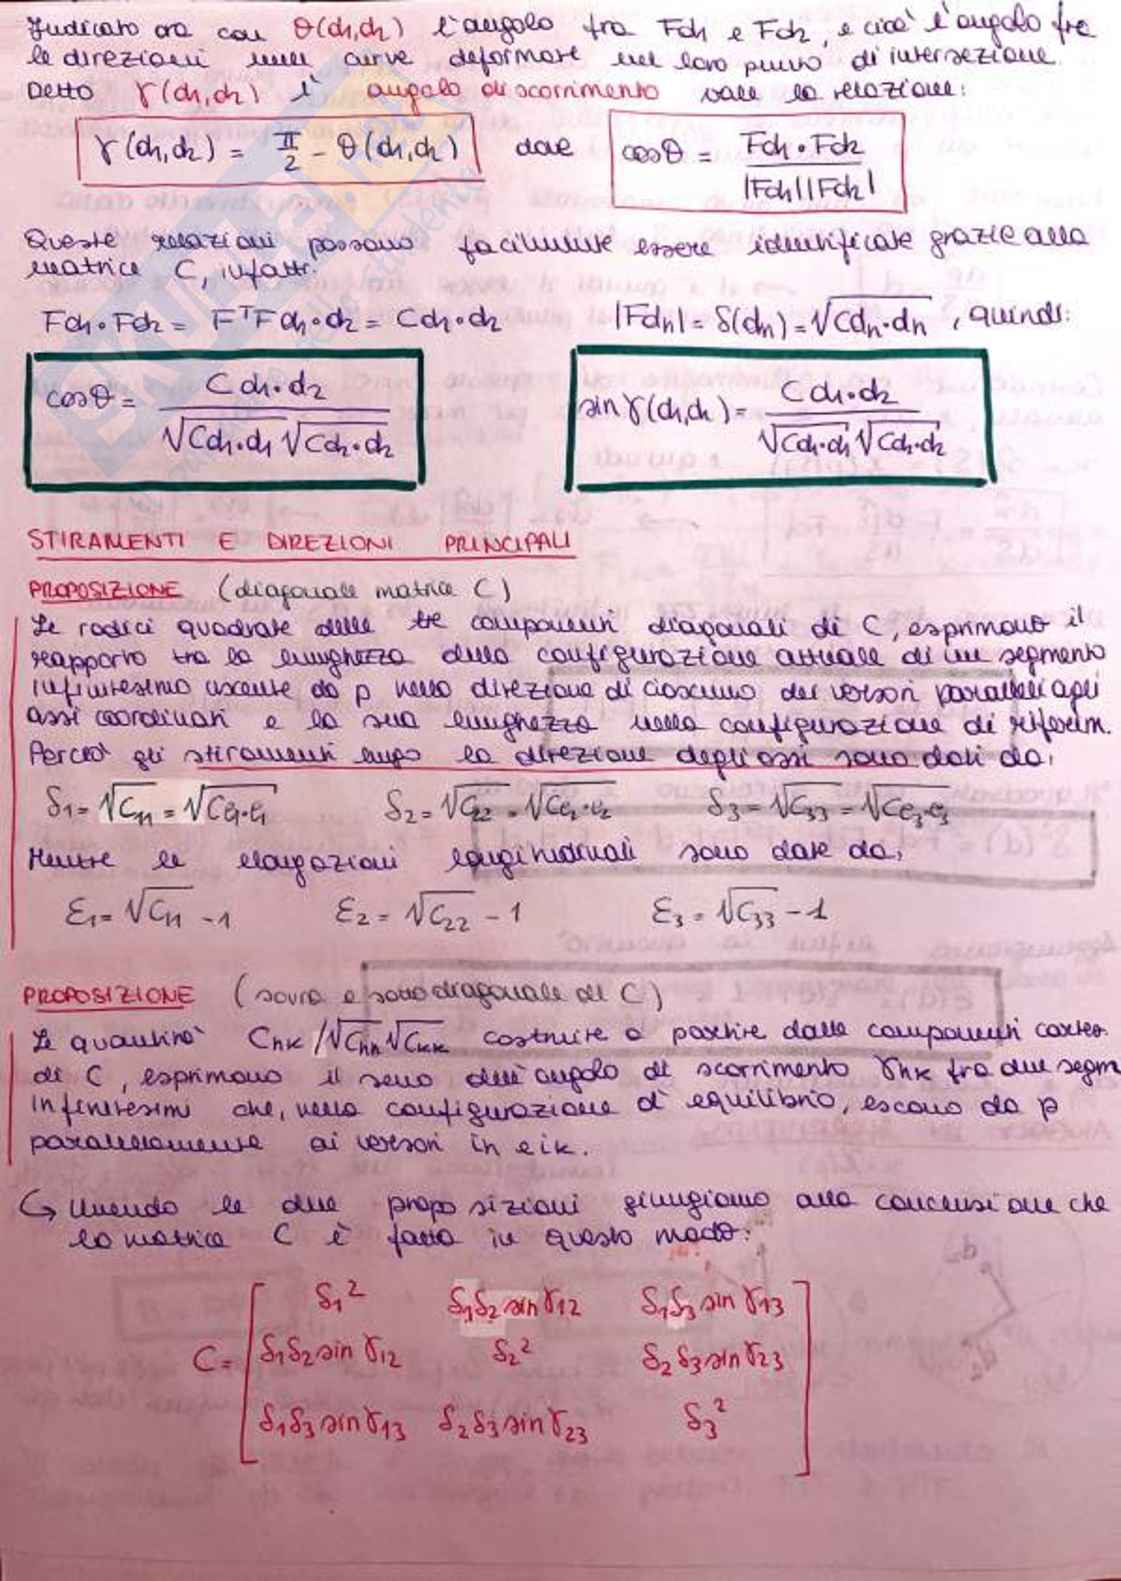 Indicato ora con θ(d₁,d₂) l'angolo fra Fd₁ e Fd₂, e cioè l'angolo fra
le direzioni delle curve deformate nel loro punto di intersezione.
Detto γ(d₁,d₂) l'angolo di scorrimento vale la relazione:
γ(d₁,d₂) = π/2 - θ(d₁,d₂) dove cosθ = Fd₁•Fd₂ / |Fd₁||Fd₂|
Queste relazioni possono facilmente essere identificate grazie alla
matrice C, infatti:
Fd₁•Fd₂ = FᵀFd₁•d₂ = Cd₁•d₂ |Fdₙ| = δ(dₙ) = √Cdₙ•dₙ , quindi:
cosθ = Cd₁•d₂ / √Cd₁•d₁ √Cd₂•d₂ sinγ(d₁,d₂) = Cd₁•d₂ / √Cd₁•d₁ √Cd₂•d₂
STIRAMENTI E DIREZIONI PRINCIPALI
PROPOSIZIONE (diagonale matrice C)
Le radici quadrate delle tre componenti diagonali di C, esprimono il
rapporto tra la lunghezza della configurazione attuale di un segmento
infinitesimo uscente da p nella direzione di ciascuno dei versori paralleli agli
assi coordinati e la sua lunghezza nella configurazione di riferim.
Perciò gli stiramenti lungo la direzione degli assi sono dati da:
δ₁ = √C₁₁ = √Ce₁•e₁ δ₂ = √C₂₂ = √Ce₂•e₂ δ₃ = √C₃₃ = √Ce₃•e₃
Mentre le elongazioni longitudinali sono date da:
ε₁ = √C₁₁ - 1 ε₂ = √C₂₂ - 1 ε₃ = √C₃₃ - 1
PROPOSIZIONE (sovra e sottodiagonale di C)
Le quantità Chk/√Chh√Ckk costruite a partire dalle componenti cartes.
di C, esprimono il seno dell'angolo di scorrimento γhk fra due segm
infinitesimi che, nella configurazione d'equilibrio, escono da p
parallelamente ai versori ih e ik.
↪ Unendo le due proposizioni giungiamo alla conclusione che
la matrice C è fatta in questo modo:
δ₁² δ₁δ₂sinγ₁₂ δ₁δ₃sinγ₁₃
C = δ₁δ₂sinγ₁₂ δ₂² δ₂δ₃sinγ₂₃
δ₁δ₃sinγ₁₃ δ₂δ₃sinγ₂₃ δ₃²